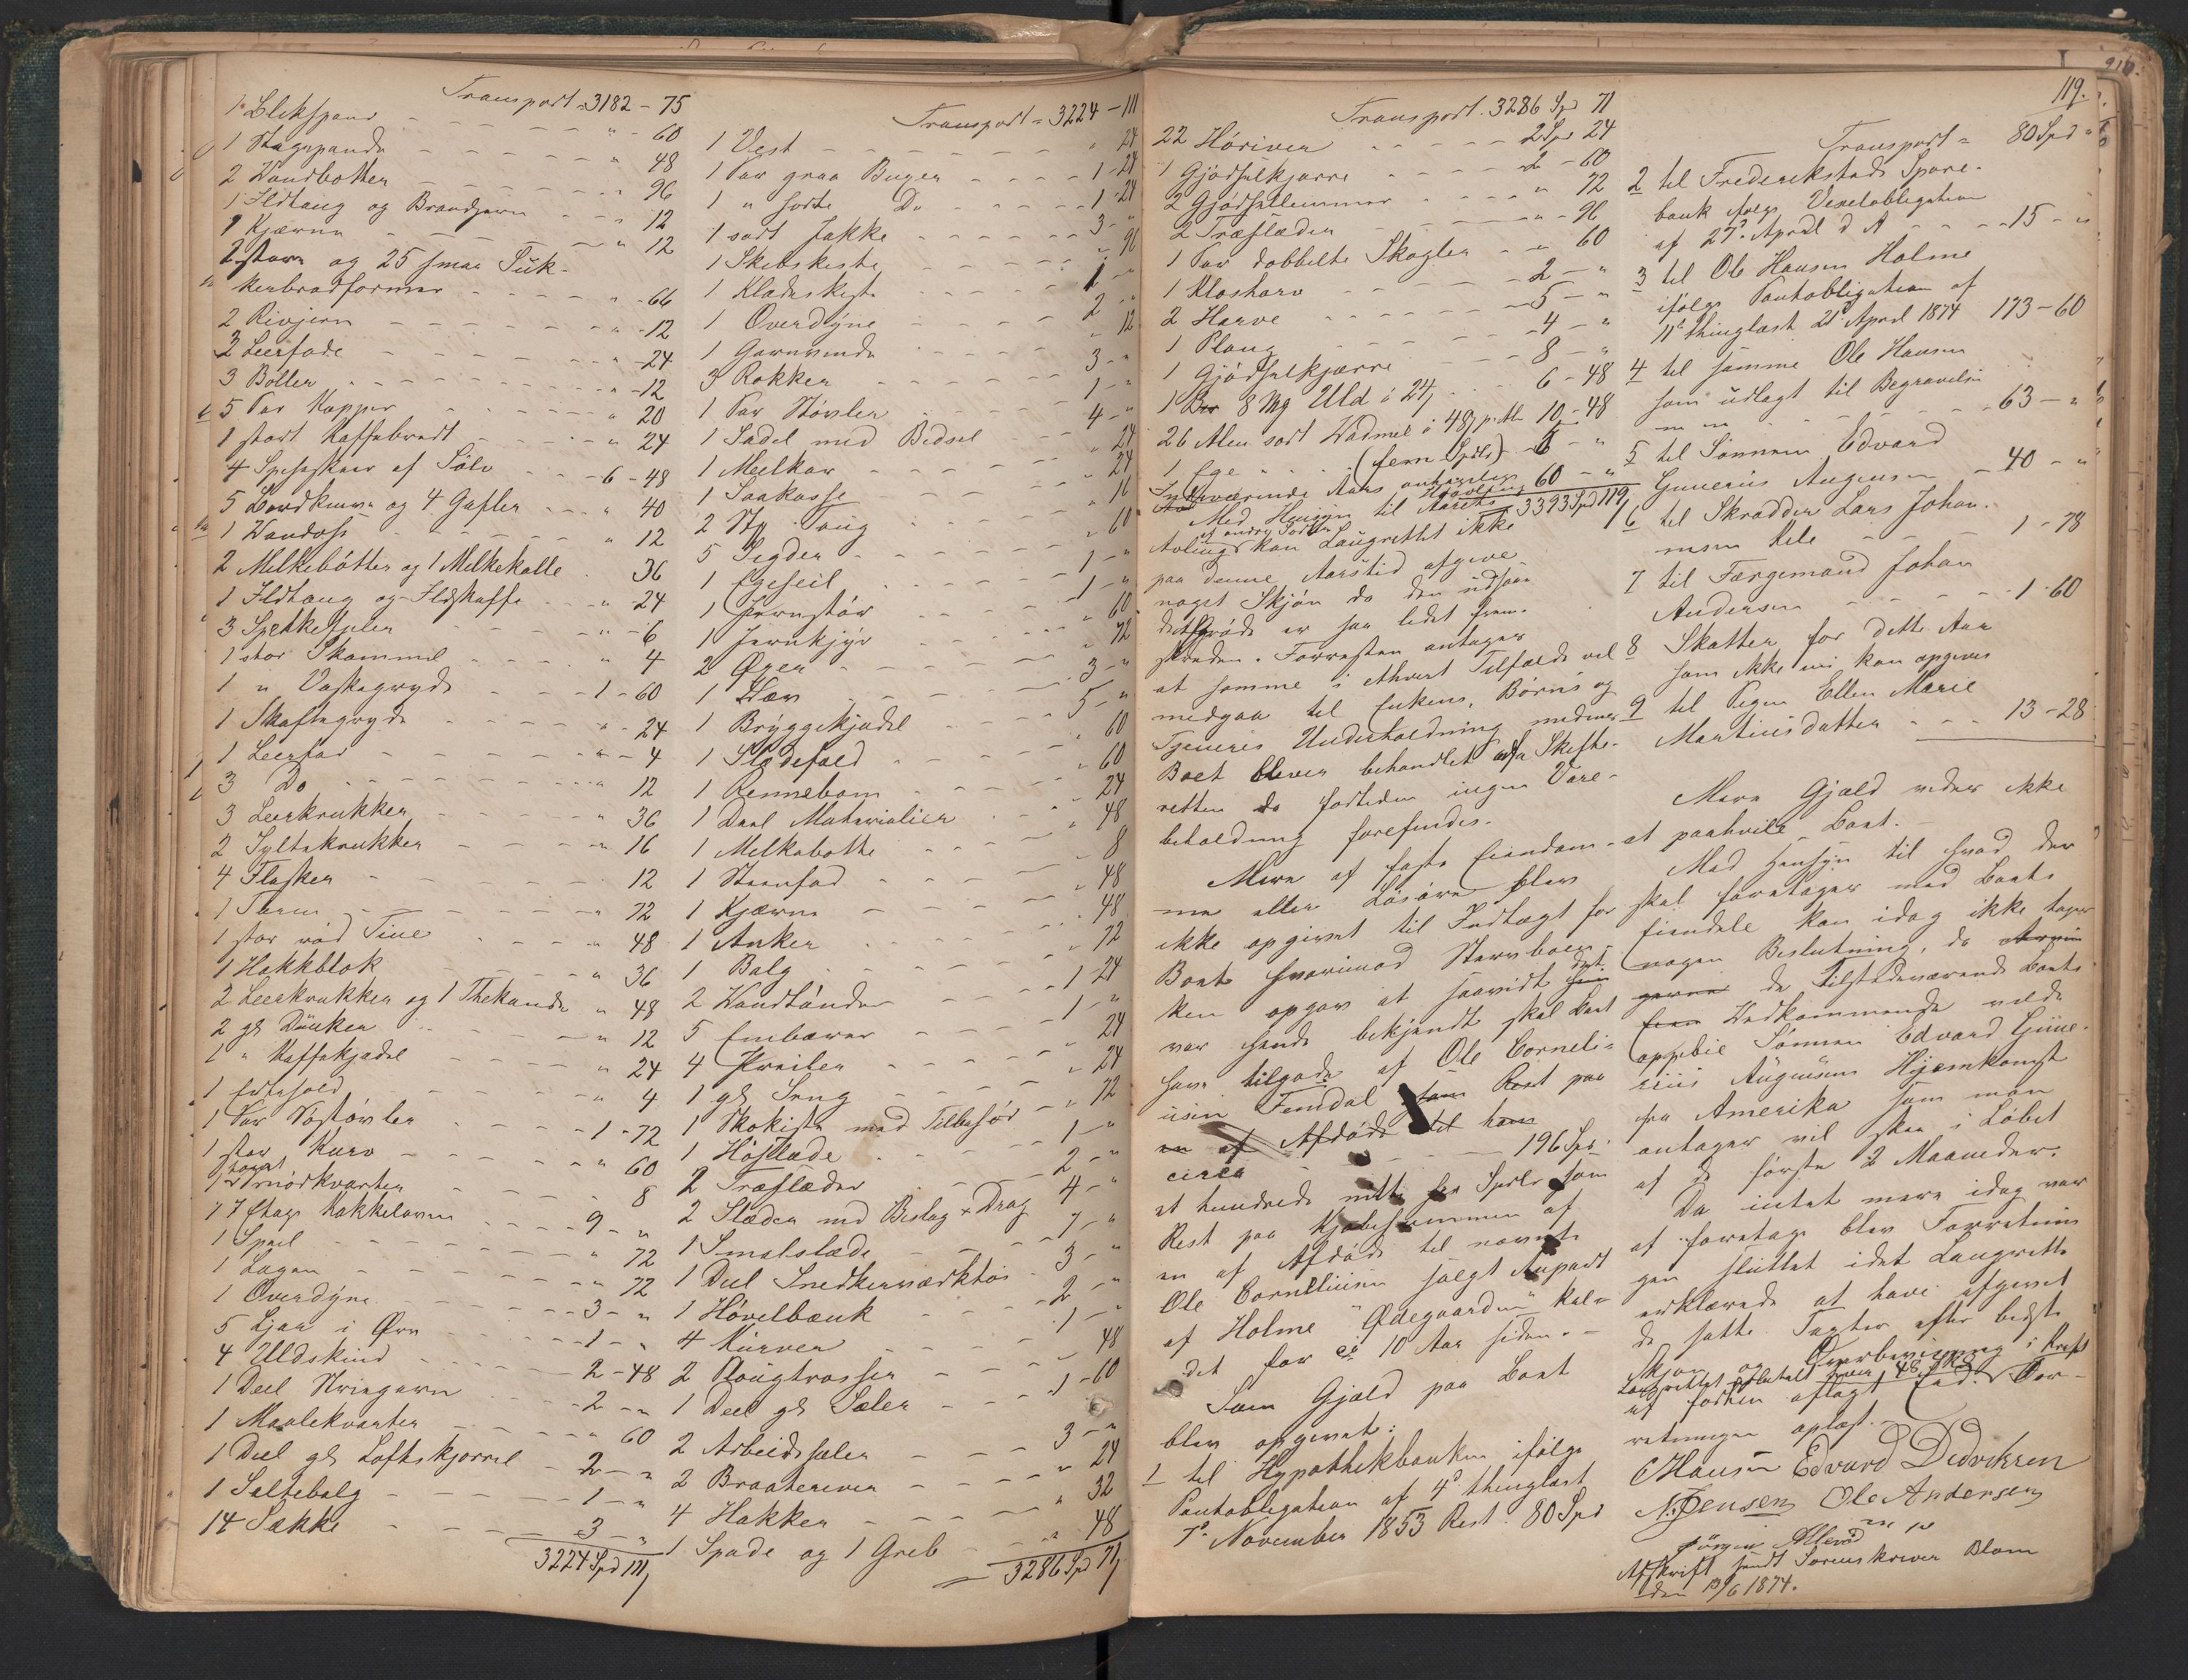 Transport = 3182 - 75
1 Blikspand - - - - " - 60
1 Stegepande - - - - " 48
2 Vandbøtter - - - - " 96
1 Ildtang og Brandjern - - " 12
1 Kjærne - - - - " 12
2 store og 25 smaa Suk-
kerbrødformer - - - - " - 66
2 Rivjern - - - - " - 12
3 Leerfade - - - - " - 24
3 Boller - - - - " - 12
5 Par Kopper - - - - " 20
1 stort Kaffebrædt - - - " 24
4 Speseskeer af Sølv - - - 6 - 48
5 Bordknive og 4 Gafler - - - " 40
1 Vandøse - - - - " 12
2 Melkebøtter og 1 Melkekolle " 36
1 Ildtang og Ildskuffe - - " 24
3 Spekkefjeler - - - - " - 6
1 stor Skammel - - - - " 4
1 " Vaskegryde - - - - 1 - 60
1 Skaftegryde - - - - " - 24
1 Leerfad - - - - " - 4
3 Do - - - - " 12
3 Leerkrukker - - - - " 36
2 Syltekrukker - - - - " 16
4 Flasker - - - - 12
1 - - - - " 72
1 stor rød Tine - - - - " 48
1 Hakkblok - - - - " 36
2 Leerkrukker og 1 Thekande " 48
2 gl Dunker - - - - " 12
1 " Kaffekjedel - - - - " 24
1 - - - - " 4
1 Par Søstøvler - - - - 1 - 72
1 stor Kurv - - - - " 60
1 Smørkvarter - - - - " 8
1 7 Etages Kakkelovn - - - - 9 - "
1 Speil - - - - " 72
1 Lagen - - - - " 72
1 Overdyne - - - - 3 - "
5 Ljaa i Orv - - - - 1 - "
4 Uldskind - - - - 2 - 48
1 Deel Striegarn - - - - 2 - "
1 Maalekvarter - - - - " 60
1 Deel gl Loftskjørrel - 2 - "
1 Saltebalg - - - - 1 - "
14 Sække - - - - 3 - "
3224 Spd 111
Transport = 3224 - 111
1 Vest - - - - " 24
1 Par graa Buxer - - - - 1 - 24
1 " sorte Do - - - - 1 - 24
1 sort Jakke - - - - 3 - "
1 Skibskiste - - - - " 96
1 Klædeskiste - - - - 1 - "
1 Overdyne - - - - 2 - "
1 Garnvinde - - - - " 12
3 Rokker - - - - 3 - "
1 Par Støvler - - - - 1 - "
1 Sadel med Bidsel - - 4 - "
1 Meelkar - - - - " 24
1 Saakasse - - - - " 24
2 Stk Toug - - - - " 16
5 Segder - - - - " 60
1 Egeseil - - - - 1 - "
1 Jernstør - - - - 1 - "
1 - - - - " 60
2 Øxer - - - - " 72
1 Væv - - - - 3 - "
1 Bryggekjedel - - - - 5 - "
1 - - - - " 60
1 Rennebom - - - - " 60
1 Deel Materialier - - " 24
1 Melkebøtte - - - - " 48
1 Steenfad - - - - " 8
1 Kjærne - - - - " 48
1 Anker - - - - " 48
1 Balg - - - - " 72
2 Vandtønder - - - - 1 24
5 Embarer - - - - 1 - "
4 - - - - " 24
1 gl Seng - - - - " 24
1 Skokiste med Tilbehør - " 72
1 Høslæde - - - - 1 - "
2 Træslæder - - - - 2 - "
2 Slæder med Beslag + Drag 4 - "
1 Smalslæde - - - - 7 - "
1 Deel Snedkerværktøi - 3 - "
1 Høvelbænk - - - - 2 - "
4 Kurver - - - - 1 - "
2 Plougtrosser - - - - " 48
1 Deel gl Seler - - - - 1 - 60
2 Arbeidsseler - - - - 3 - "
2 Braateriver - - - - " 24
4 Hakker - - - - " 32
1 Spade og 1 Greb - - - " 48
= 3286 Spd 71
Transport. 3286 Spd 71
22 Høriver - - - - 2 Spd 24
1 Gjødselkjærre - - - - 2 - 60
2 Gjødsellemmer - - - - " 72
2 Træslæder - - - - " - 96
1 Par dobbelte Skagler - - " 60
1 Kloharv - - - - 2 - "
2 Harve - - - - 5 - "
1 Ploug - - - - 4 - "
1 Gjødselkjærre - - 8 - "
1 8 Mg Uld á 24 - - 6 - 48
26 Alen sort Vadmel á 48 pr Al. 10 - 48
1 Ege - - (fem Spdlr) - 5 - "
Indeværende Aars Høavling 60 - "
3393 Spd 119
Med Hensyn til Aarets
af andre Sorter
Avling kan Laugrettet ikke
paa denne Aarstid afgive
noget Skjøn da den udsaa-
ede Grøde er saa lidet frem-
skreden. Forresten antages
at samme i ethvert Tilfælde vil
medgaa til Enkens, Børns og
Tjeneres Underholdning medens
Boet bliver behandlet af Skifte-
retten da fortiden ingen Vare-
beholdning forefindes.
Mere af faste Eiendom-
me eller Løsøre blev
ikke opgivet til Indtægt for
Boet hvorimod Stervboen-
ken opgav at saavidt det
var hende bekjendt skal Boet
have tilgode af Ole Corneli-
usen Femdal Rest paa
en af Afdøde til ham
circa - - - - 196 Spd
et hundrede nitti sex Spdlr som
Rest paa Kjøbesummen af
en af Afdøde til nævnte
Ole Corneliusen solgt Anpart
af Holme "Ødegaarden" kal-
det for ca 10 Aar siden. -
Som Gjæld paa Boet
blev opgivet:
1 til Hypothekbanken ifølge
Pantobligation af 4de thinglæst
7de November 1853 Rest. 80 Spd
119.
Transport = 80 Spd "
2 til Frederikstads Spare-
bank følge Vexelobligation
af 27de April d A - - - 15 - "
3 til Ole Hansen Holme
ifølge Pantobligation af
11te thinglæst 21 April 1874 173 - 60
4 til samme Ole Hansen
som udlagt til Begravelse
m m - - - - 63 - "
5 til Sønnen Edvard
Gunerius Augensen - 40 - "
6 til Skrædder Lars Johan-
nesen Hele - - - 1 - 78
7 til Færgemand Johan
Andersen - - - - 1 - 60
8 Skatter for dette Aar
som ikke nu kan opgives
9 til Pigen Ellen Marie
Martinusdatter - - - 13 - 28
Mere Gjæld vides ikke
at paahvile Boet. -
Med Hensyn til hvad der
skal foretages med Boets
Eiendele kan idag ikke tages
nogen Beslutning, da
gerne de Tilstedeværende Boets
Vedkommende vilde
oppebie Sønnen Edvard Gune-
rius Augensens Hjemkomst
fra Amerika som man
antager vil skee i Løbet
af de første 2 Maaneder.
Da intet mere idag var
at foretage blev Forretnin-
gen sluttet idet Laugrettet
erklærede at have afgivet
de satte Taxter efter bedste
Skjøn og Overbeviisning i Kraft
Laugrettet betalt hver 48 Sk
af forhen aflagt Eed. For-
retningen oplæst. -
CHansen Edvard Didriksen
N. Jensen Ole Andersen
Jørgen m p
Afskrift sendt Sorenskriver Blom
den 13/6 1874.